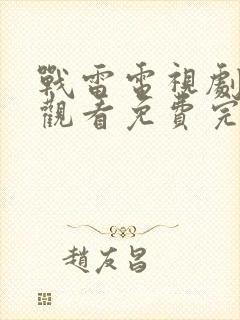 戰雷電視劇
觀看免費完
趙友昌